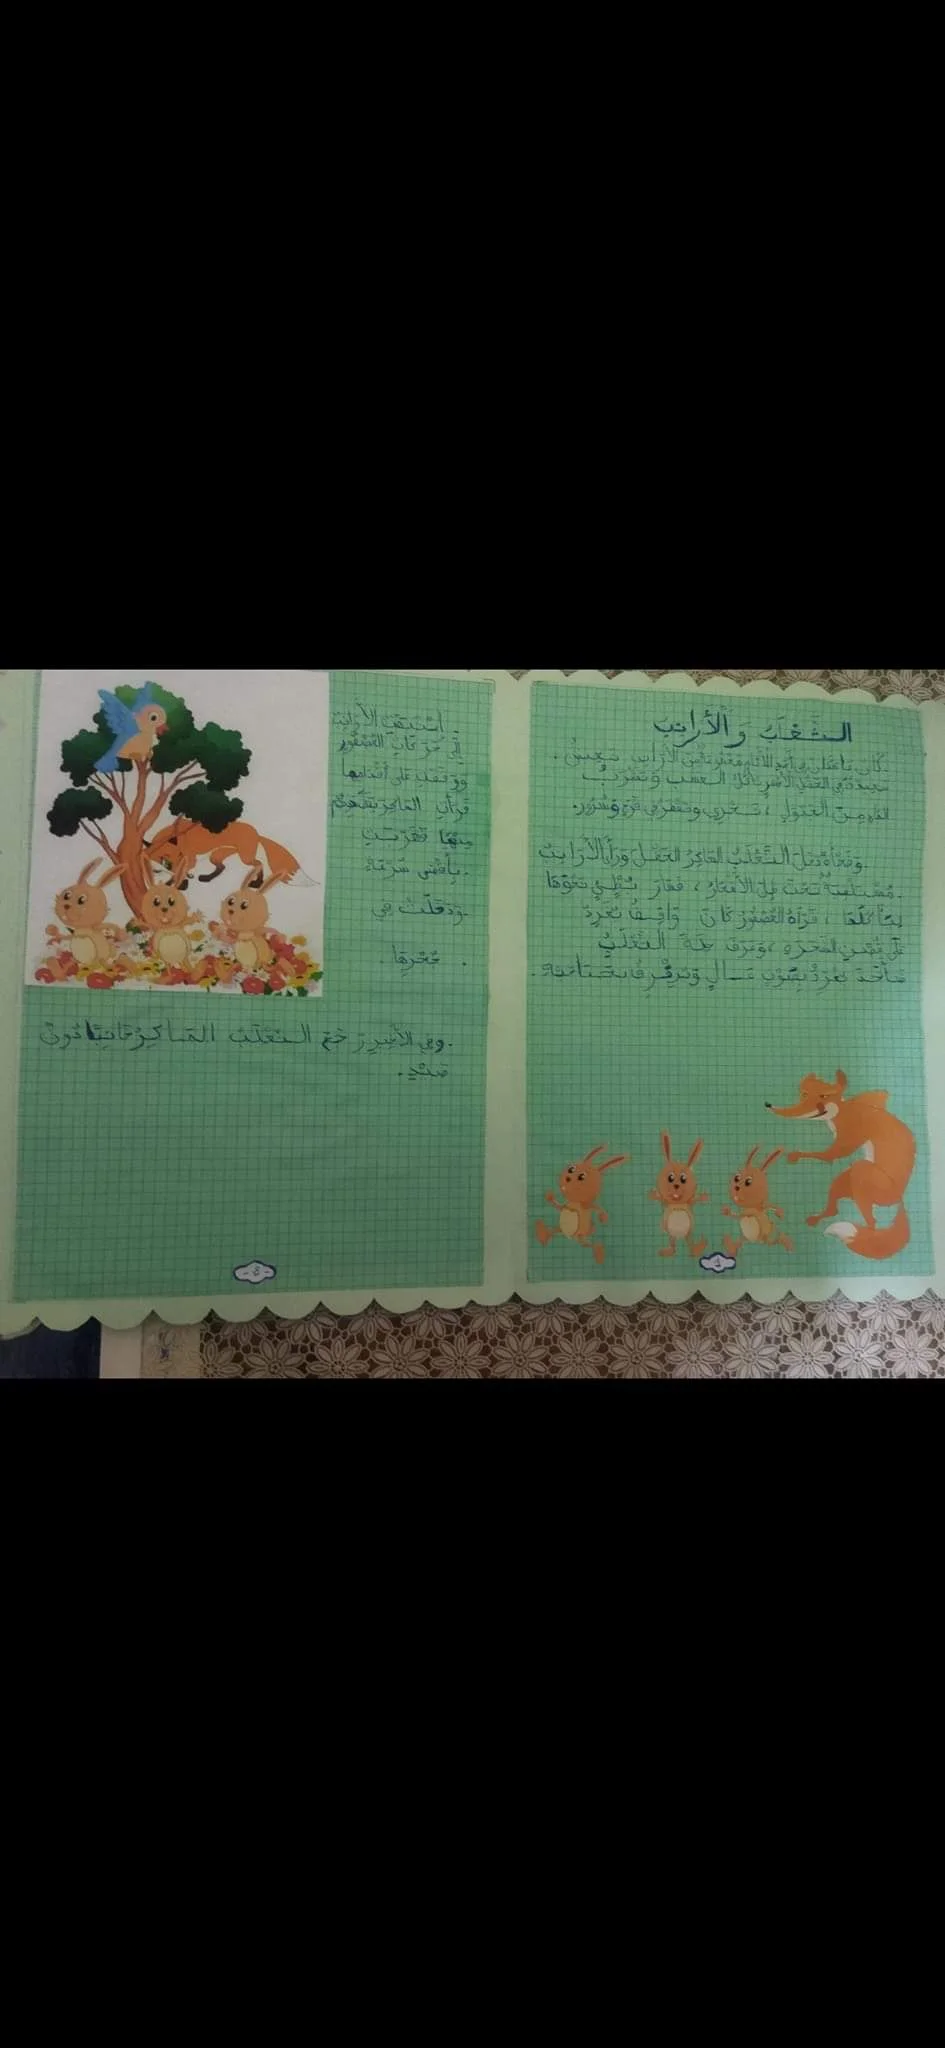 الثعلب والأرانب
كان ياما في أحد الأيام مجموعة من الأرانب تعيش
سعيدة في الحقل الأخضر تأكل العشب وتشرب
الماء من الجدول، تجري وتقفز في فرح وسرور.
وفجأة دخل الثعلب الماكر الحقل ورأى الأرانب
مستلقية تحت ظل الأشجار، فسار ببطئ نحوها
ليأكلها، فرآه العصفور كان واقف يغرد
على غصن الشجرة، وعرف حيلة الثعلب
فأخذ يغرد بصوت عال ويرفرف بجناحيه.
استيقظت الأرانب
إلى حركات العصفور
ووقفت على أقدامها
فرأت الماكر يتقدم
منها ففرت
بأقصى سرعة
ودخلت في
جحرها.
وفي الأخير رجع الثعلب الماكر خائبا دون
صيد.